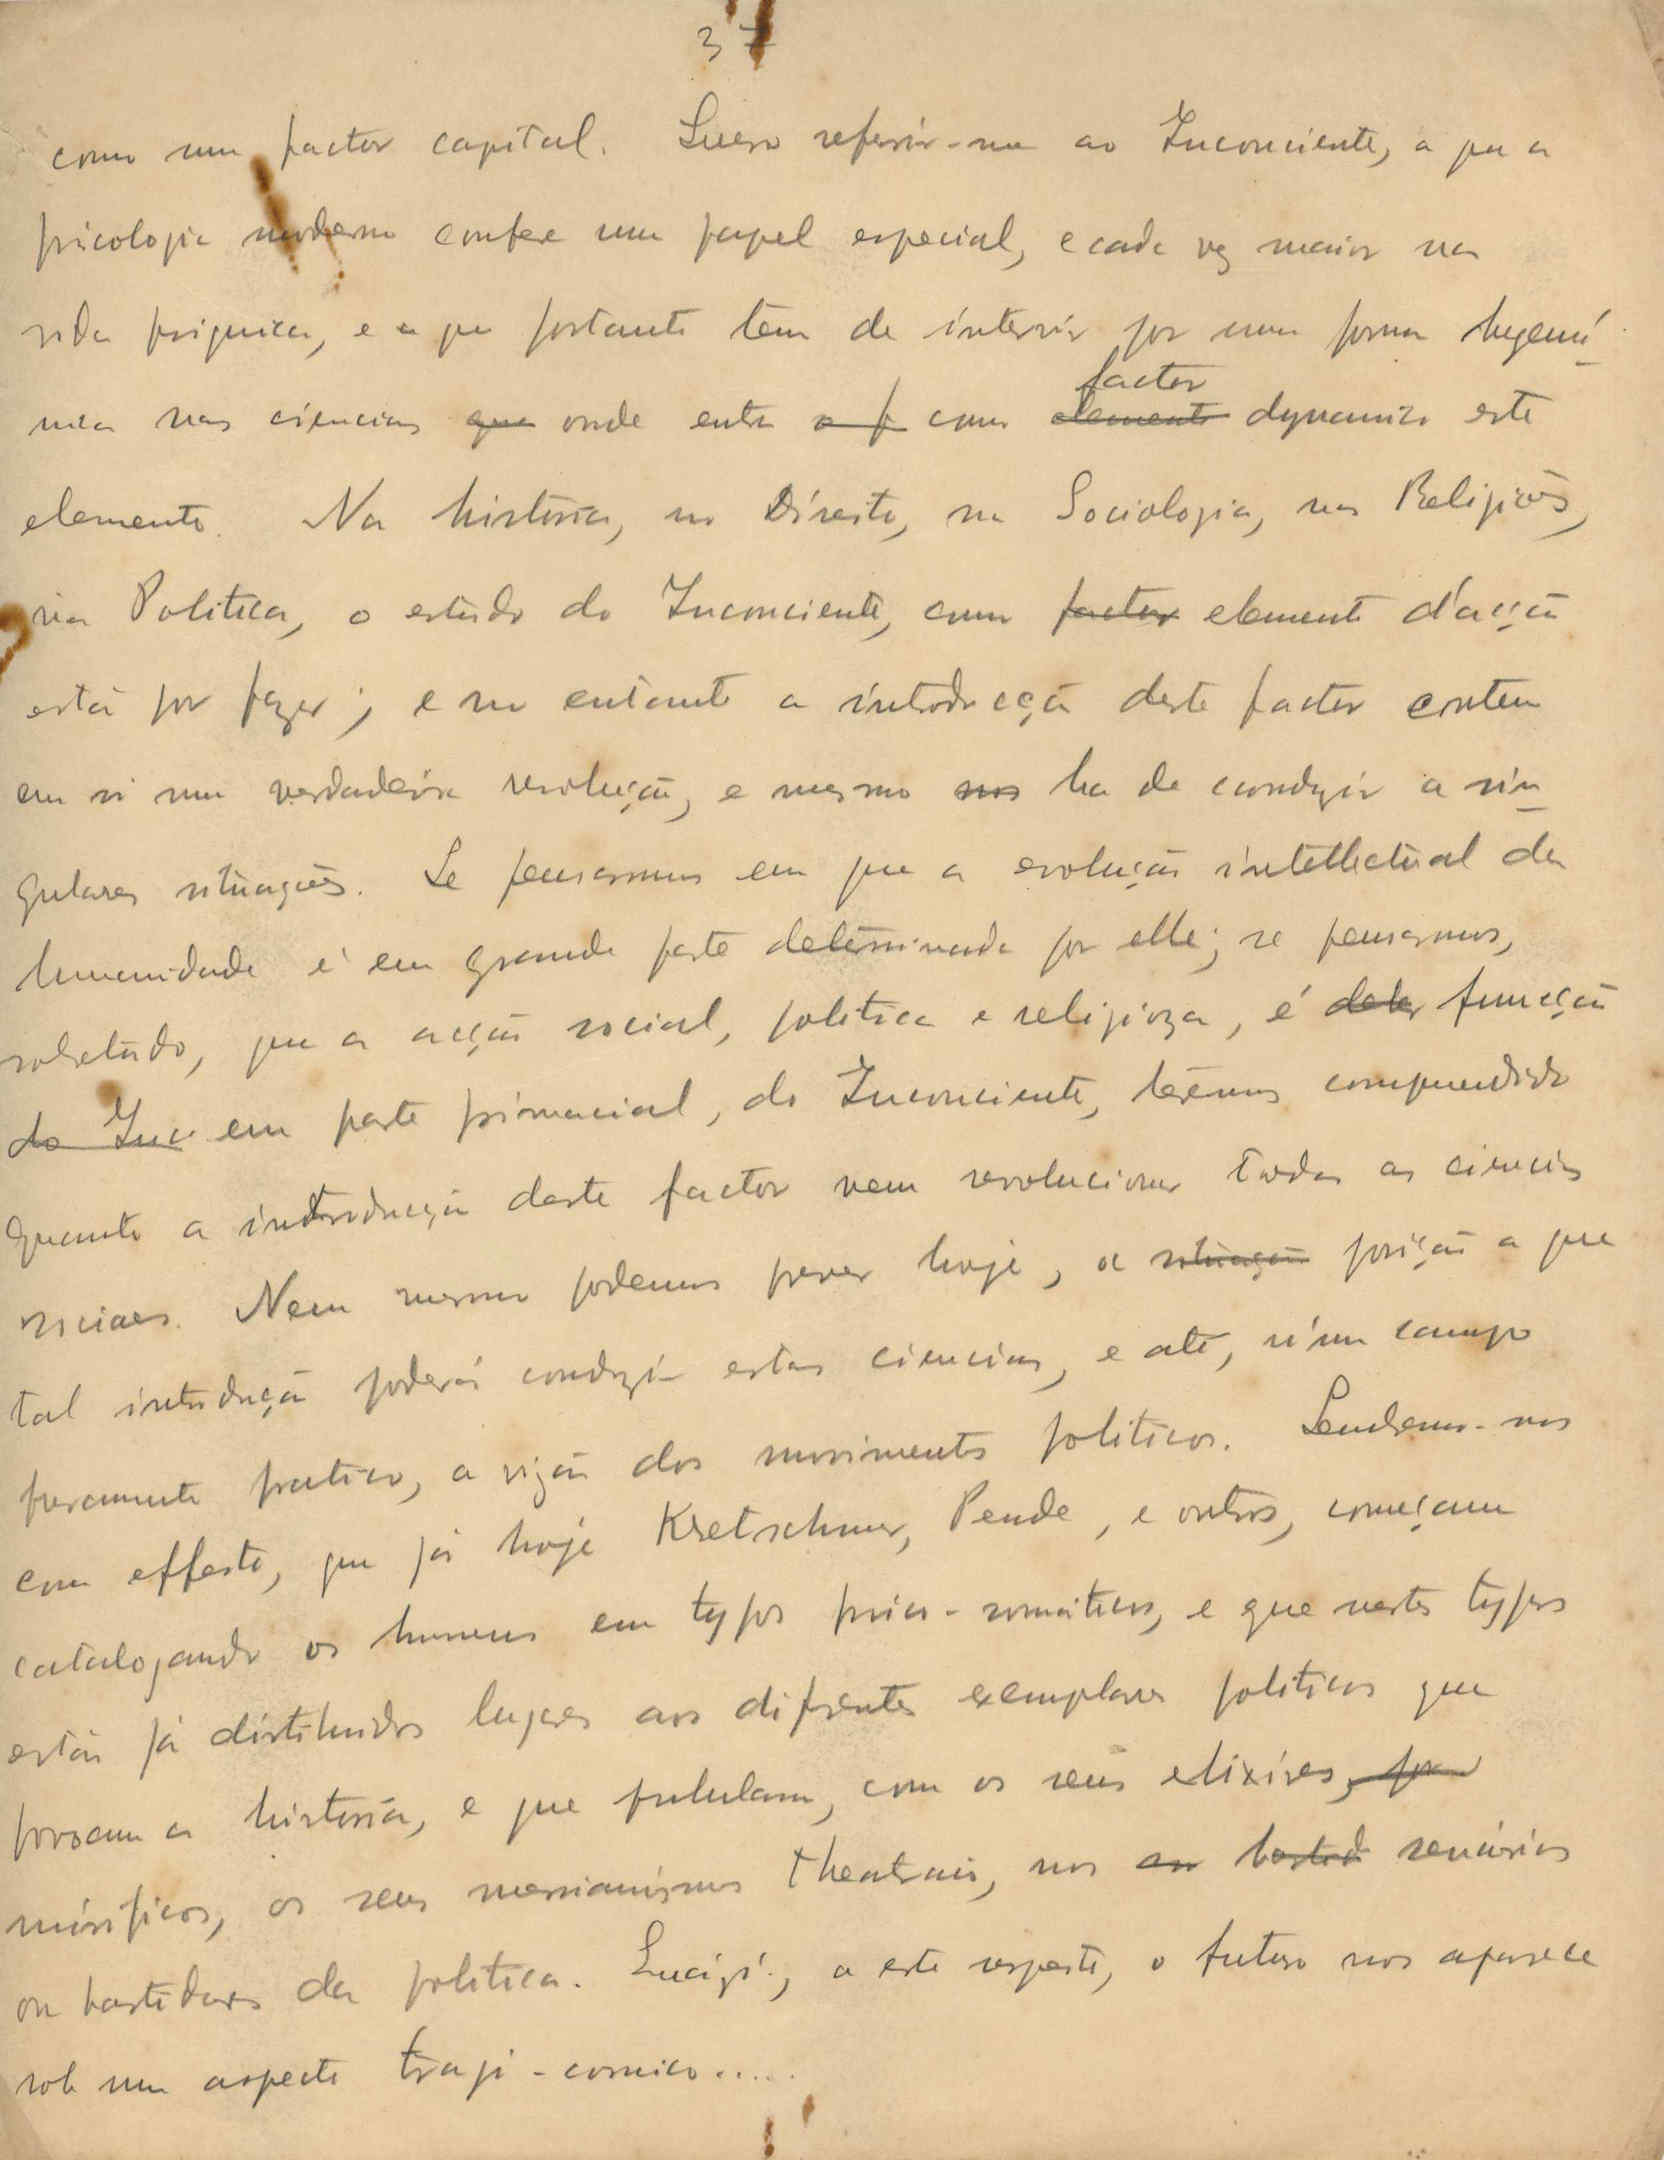 37
como um factor capital. Quero referir-me ao Inconciente, a que a
psicologia moderna confere um papel especial, e cada vez maior na
vida psiquica, e a que portanto tem de intervir por uma forma hegemó-
nica nas ciencias que onde entra o f como elemento factor dynamico este
elemento. Na história, no Direito, na Sociologia, nas Religiões,
na Politica, o estudo do Inconciente, como factor elemento d'acção
está por fazer; e no entanto a introducção deste factor contem
em si uma verdadeira revolução, e mesmo nos ha de conduzir a sin-
gulares situações. Se pensarmos em que a evolução intellectual da
humanidade é em grande parte determinada por elle; se pensarmos,
sobretudo, que a acção social, politica e religioza, é deter funcção
do Inc em parte primacial, do Inconciente, teremos comprendido
quanto a introducção deste factor vem revolucionar todas as ciencias
sociaes. Nem mesmo podemos prever hoje, a situação posição a que
tal introdução poderá conduzir estas ciencias, e até, n'um campo
puramente pratico, a vizão dos movimentos politicos. Lembremo-nos
com effeito, que já hoje Kretschmer, Pende, e outros, começam
catalogando os homens em typos psico-somáticos, e que nestes typos
estão já distribuidos lugares aos difrentes exemplares politicos que
povoam a história, e que pululam, com os seus elixires, por
mirificos, os seus messianismos theatrais, nos os bastid scenários
ou bastidores da politica. a este respeito, o futuro nos aparece
sob um aspecto tragi-comico.....